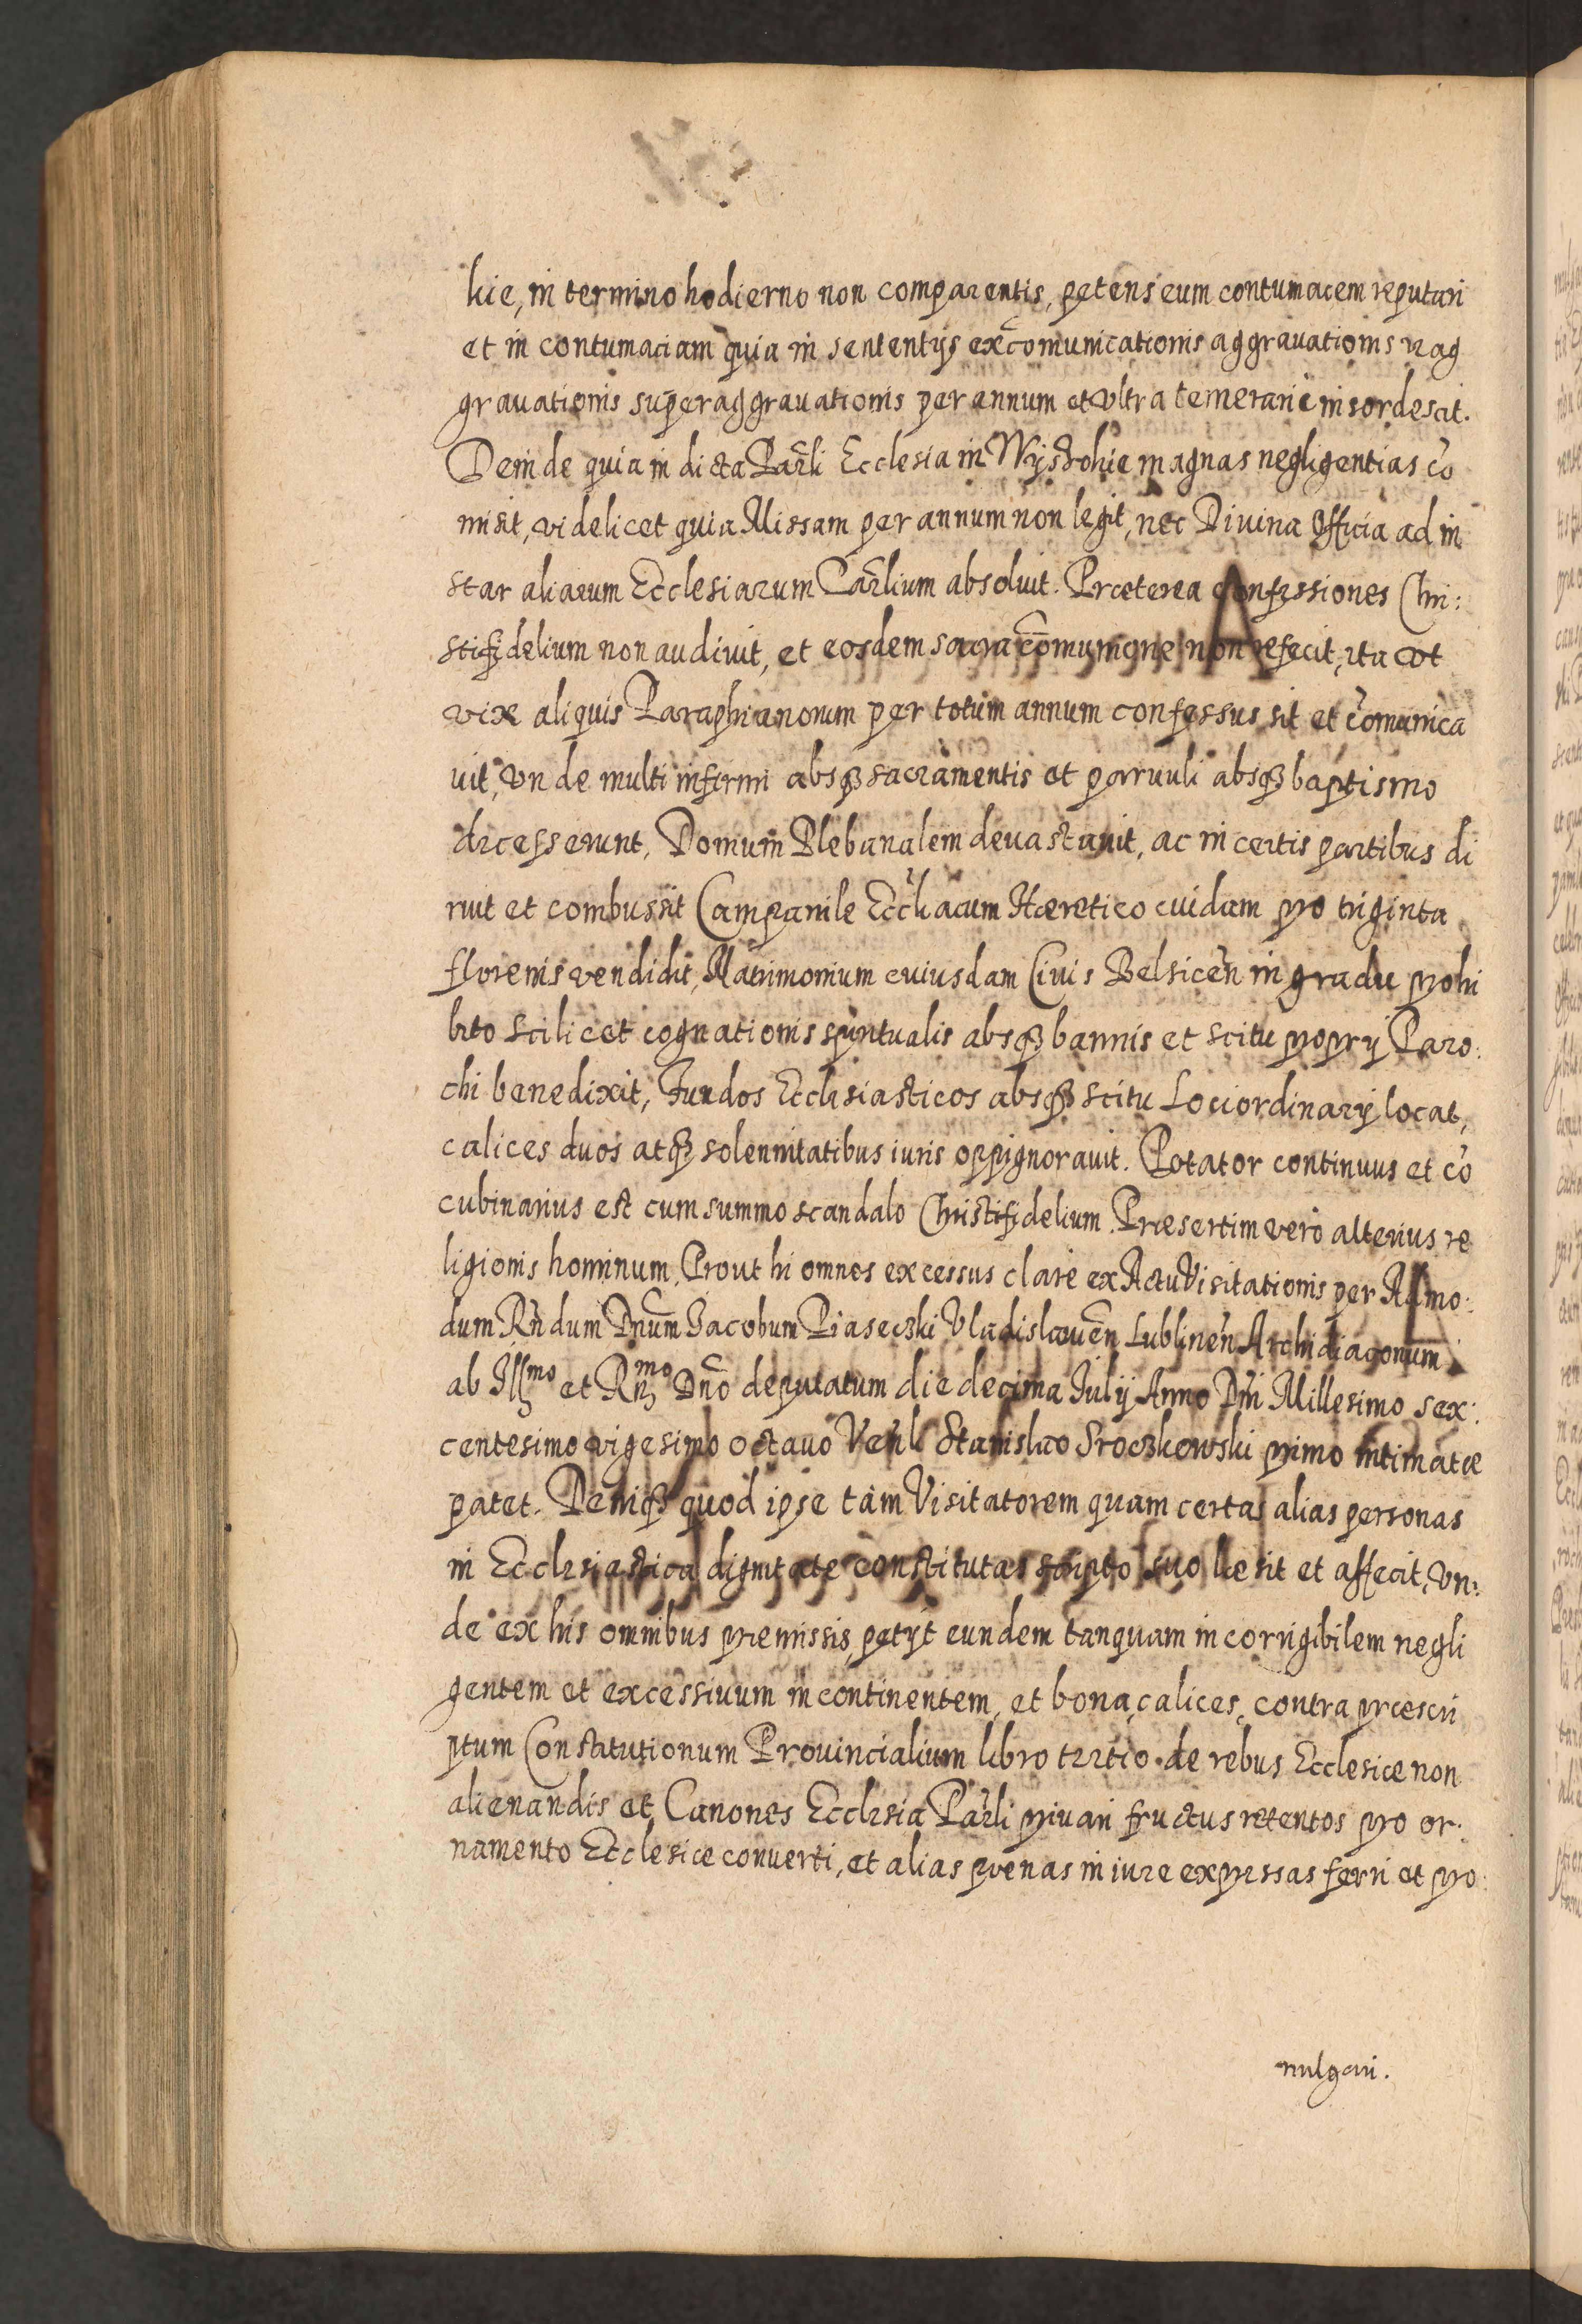 kie, in termino hodierno non comparentis, petens eum contumacem reputari
et in contumaciam quia in sententijs excomunicationis aggrauationis reag
grauationis superaggrauationis per annum et vltra temerarie insordescit.
Deinde quia in dicta Parli Ecclesia in Wÿstokie magnas negligentias cō
misit, videlicet quia Missam per annum non legit, nec Diuina Officia ad in
star aliarum Ecclesiarum Parlium absoluit. Præterea confessiones Chri:
stifidelium non audiuit, et eosdem sacra cōmunione non refecit, ita vt
vix aliquis Paraphianorum per totum annum confessus sit et cōmunica
uit, vnde multi infirmi absqꝫ sacramentis et paruuli absqꝫ baptismo
decesserunt, Domum Plebanalem deuastauit, ac in certis partibus di
ruit et combussit Campanile Ecclīacum Hæretico cuidam pro triginta
florenis vendidit, Matrimonium cuiusdam Ciuis Belsicen̄ in gradu prohi
bito scilicet cognationis spiritualis absqꝫ bannis et scitu proprij Paro:
chi benedixit, Fundos Ecclesiasticos absqꝫ scitu Loci ordinarij locat,
calices duos atqꝫ solennitatibus iuris oppignorauit. Potator continuus et cō
cubinarius est cum summo scandalo Christifidelium Præsertim vero alterius re
ligionis hominum, Prout hi omnes excessus clare ex Actu Visitationis per Admo:
dum Rn̄dum Dnūm Jacobum Piaseczki Vladislauien̄ Lublinen̄ Archidiaconum
ab Illmo et Rmo Dnō deputatum die decima Julij Anno Dni Millesimo sex:
centesimo vigesimo octauo Venli Stanislao Sroczkowski primo intimatæ
patet. Deniqꝫ quod ipse tàm Visitatorem quam certas alias personas
in Ecclesiastica dignitate constitutas scripto suo læsit et affecit, vn:
de ex his omnibus præmissis, petijt eundem tanquam incorrigibilem negli
gentem et excessiuum incontinentem, et bona, calices, contra præscri
ptum Constitutionum Prouincialium libro tertio de rebus Ecclesiæ non
alienandis et Canones Ecclesia Parli priuari fructus retentos pro or:
namento Ecclesiæ conuerti, et alias pœnas in iure expressas ferri et pro:
mulgari.